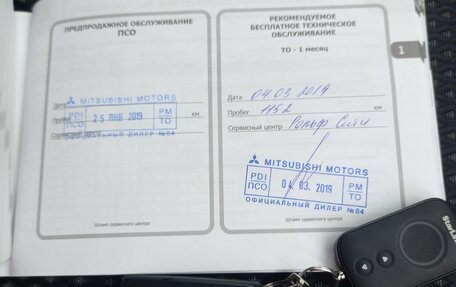 ПРЕДПРОДАЖНОЕ ОБСЛУЖИВАНИЕ
ПСО
Дата
MITSUBISHI MOTORS
Пробег
PDI
ПСО
25 ЯНВ 2019
PM
ТО
км
Сервисный центр
ОФИЦИАЛЬНЫЙ ДИЛЕР №64
Штамп сервисного центра
РЕКОМЕНДУЕМОЕ
БЕСПЛАТНОЕ ТЕХНИЧЕСКОЕ
ОБСЛУЖИВАНИЕ
ТО - 1 месяц
Дата 04.03.2019
Пробег 1152 км
Сервисный центр Рольф Сити
MITSUBISHI MOTORS
PDI
ПСО
04. 03. 2019
PM
ТО
ОФИЦИАЛЬНЫЙ ДИЛЕР №64
Штамп сервисного центра
1
StarLine